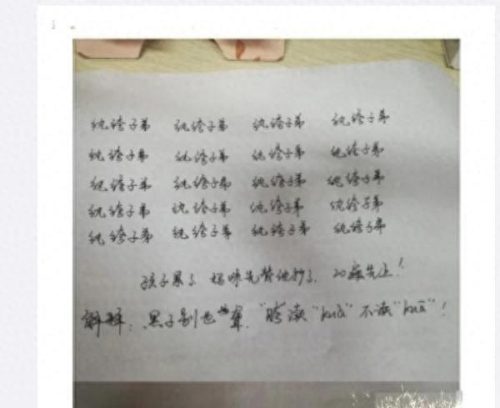 纨绔子弟 纨绔子弟 纨绔子弟 纨绔子弟
纨绔子弟 纨绔子弟 纨绔子弟 纨绔子弟
纨绔子弟 纨绔子弟 纨绔子弟 纨绔子弟
纨绔子弟 纨绔子弟 纨绔子弟 纨绔子弟
纨绔子弟 纨绔子弟 纨绔子弟 纨绔子弟
孩子累了 妈咪先替他抄了，20遍先上！
解释：黑子别 读"kuà"不读"kuā"！